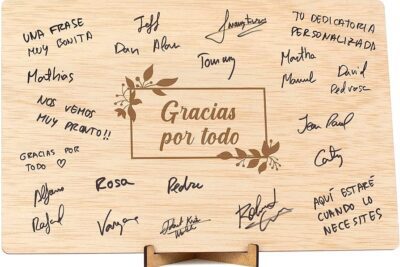 UNA FRASE
MUY BONITA
Jeff
Dan Alan
Tommy
TU DEDICATORIA
PERSONALIZADA
Mathias
Martha
Manuel
David
Pedrosa
NOS VEMOS
MUY PRONTO!!
Gracias
por todo
Jean Paul
GRACIAS POR
TODO ♡
Caty
Alfonso
Rafael
Rosa
Pedro
Vargas
Roland
AQUÍ ESTARÉ
CUANDO LO
NECESITES